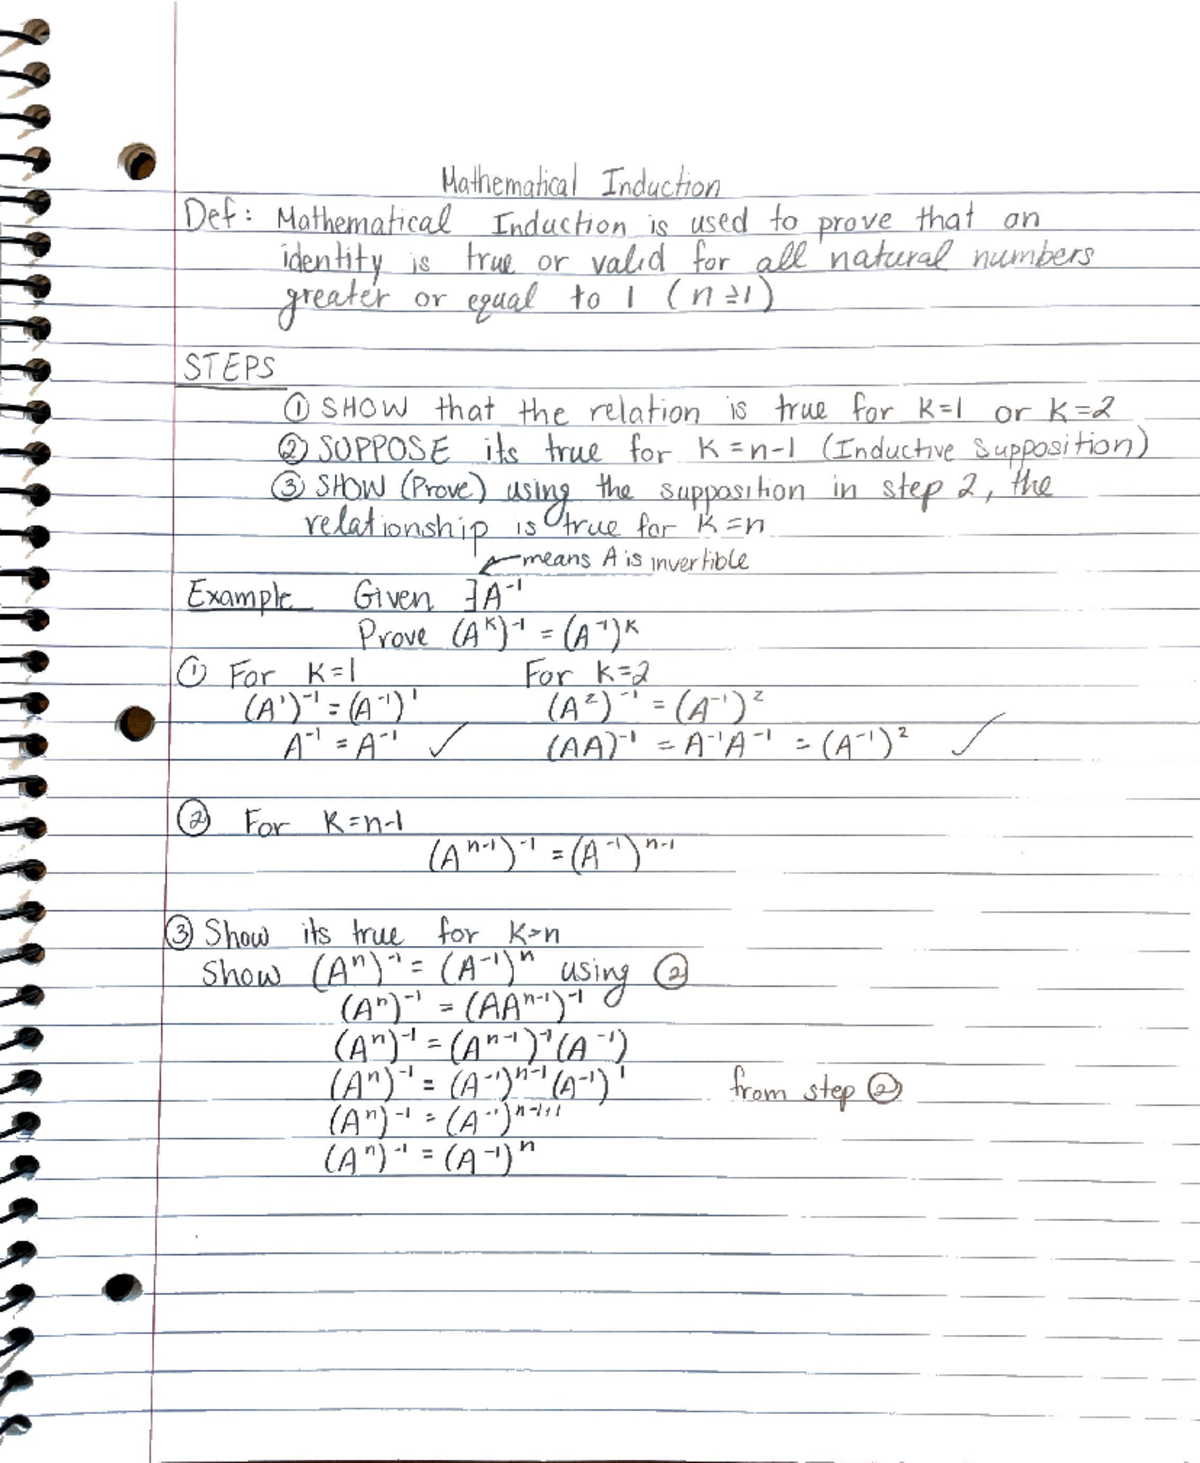 Mathematical Induction
Def: Mathematical Induction is used to prove that an
identity is true or valid for all natural numbers
greater or equal to 1 (n≥1)
STEPS
① SHOW that the relation is true for K=1 or K=2
② SUPPOSE its true for K=n-1 (Inductive Supposition)
③ SHOW (Prove) using the supposition in step 2, the
relationship is true for K=n
means A is invertible
Example Given ∃A⁻¹
Prove (Aᴷ)⁻¹ = (A⁻¹)ᴷ
① For K=1 For K=2
(A¹)⁻¹ = (A⁻¹)¹ (A²)⁻¹ = (A⁻¹)²
A⁻¹ = A⁻¹ ✓ (AA)⁻¹ = A⁻¹A⁻¹ = (A⁻¹)² ✓
② For K=n-1
(Aⁿ⁻¹)⁻¹ = (A⁻¹)ⁿ⁻¹
③ Show its true for K=n
Show (Aⁿ)⁻¹ = (A⁻¹)ⁿ using ②
(Aⁿ)⁻¹ = (AAⁿ⁻¹)⁻¹
(Aⁿ)⁻¹ = (Aⁿ⁻¹)⁻¹(A⁻¹)
(Aⁿ)⁻¹ = (A⁻¹)ⁿ⁻¹(A⁻¹)¹ from step ②
(Aⁿ)⁻¹ = (A⁻¹)ⁿ⁻¹⁺¹
(Aⁿ)⁻¹ = (A⁻¹)ⁿ